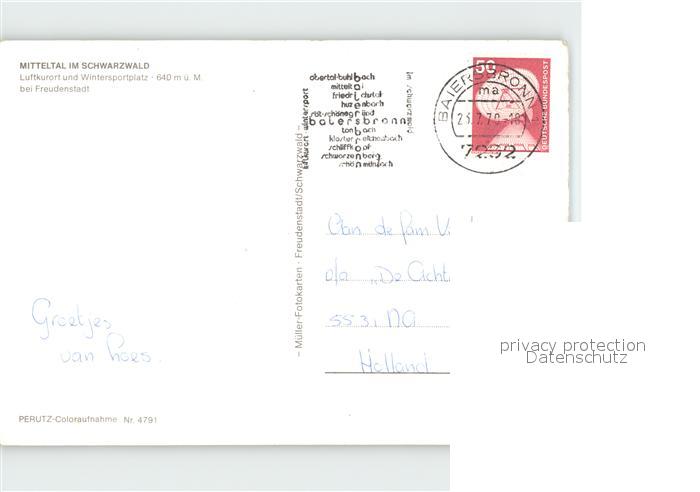 MITTELTAL IM SCHWARZWALD
Luftkurort und Wintersportplatz · 640 m ü. M.
bei Freudenstadt
obertal-buhlbach
mitteltal
friedrichstal
huzenbach
röt-schönegründ
baiersbronn
tonbach
kloster-reichenbach
schliffkopf
schwarzenberg
schönmünzach
luftkurort wintersport
im schwarzwald
BAIERSBRONN
ma
7292
50
DEUTSCHE BUNDESPOST
– Müller-Fotokarten · Freudenstadt/Schwarzwald –
Aan de fam
p/a „De Acht
5531 NA
Holland
Groetjes
van Loes.
PERUTZ-Coloraufnahme Nr. 4791
privacy protection
Datenschutz